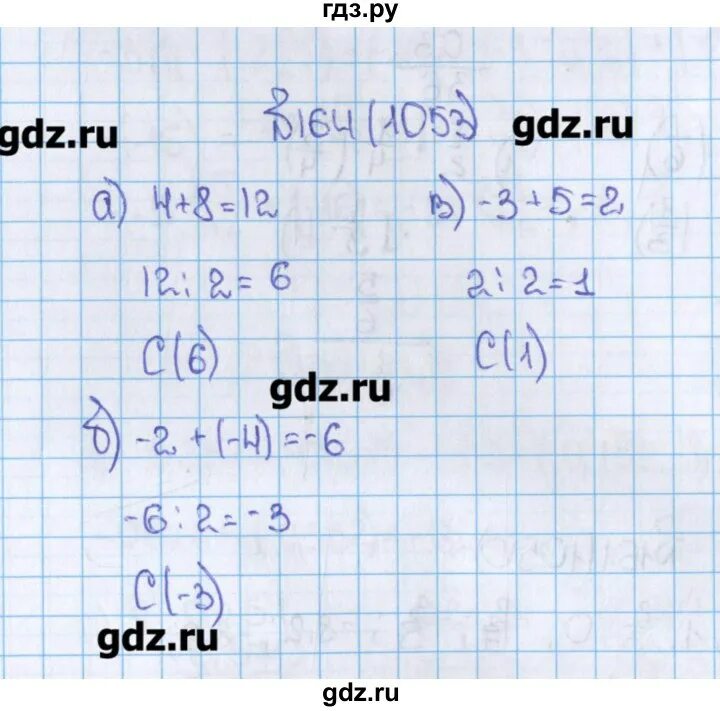 гдз.ру
№164(1053)
gdz.ru
gdz.ru
а) 4+8=12
12:2=6
С(6)
в) -3+5=2
2:2=1
С(1)
gdz.ru
б) -2+(-4)=-6
-6:2=-3
С(-3)
gdz.ru
gdz.ru